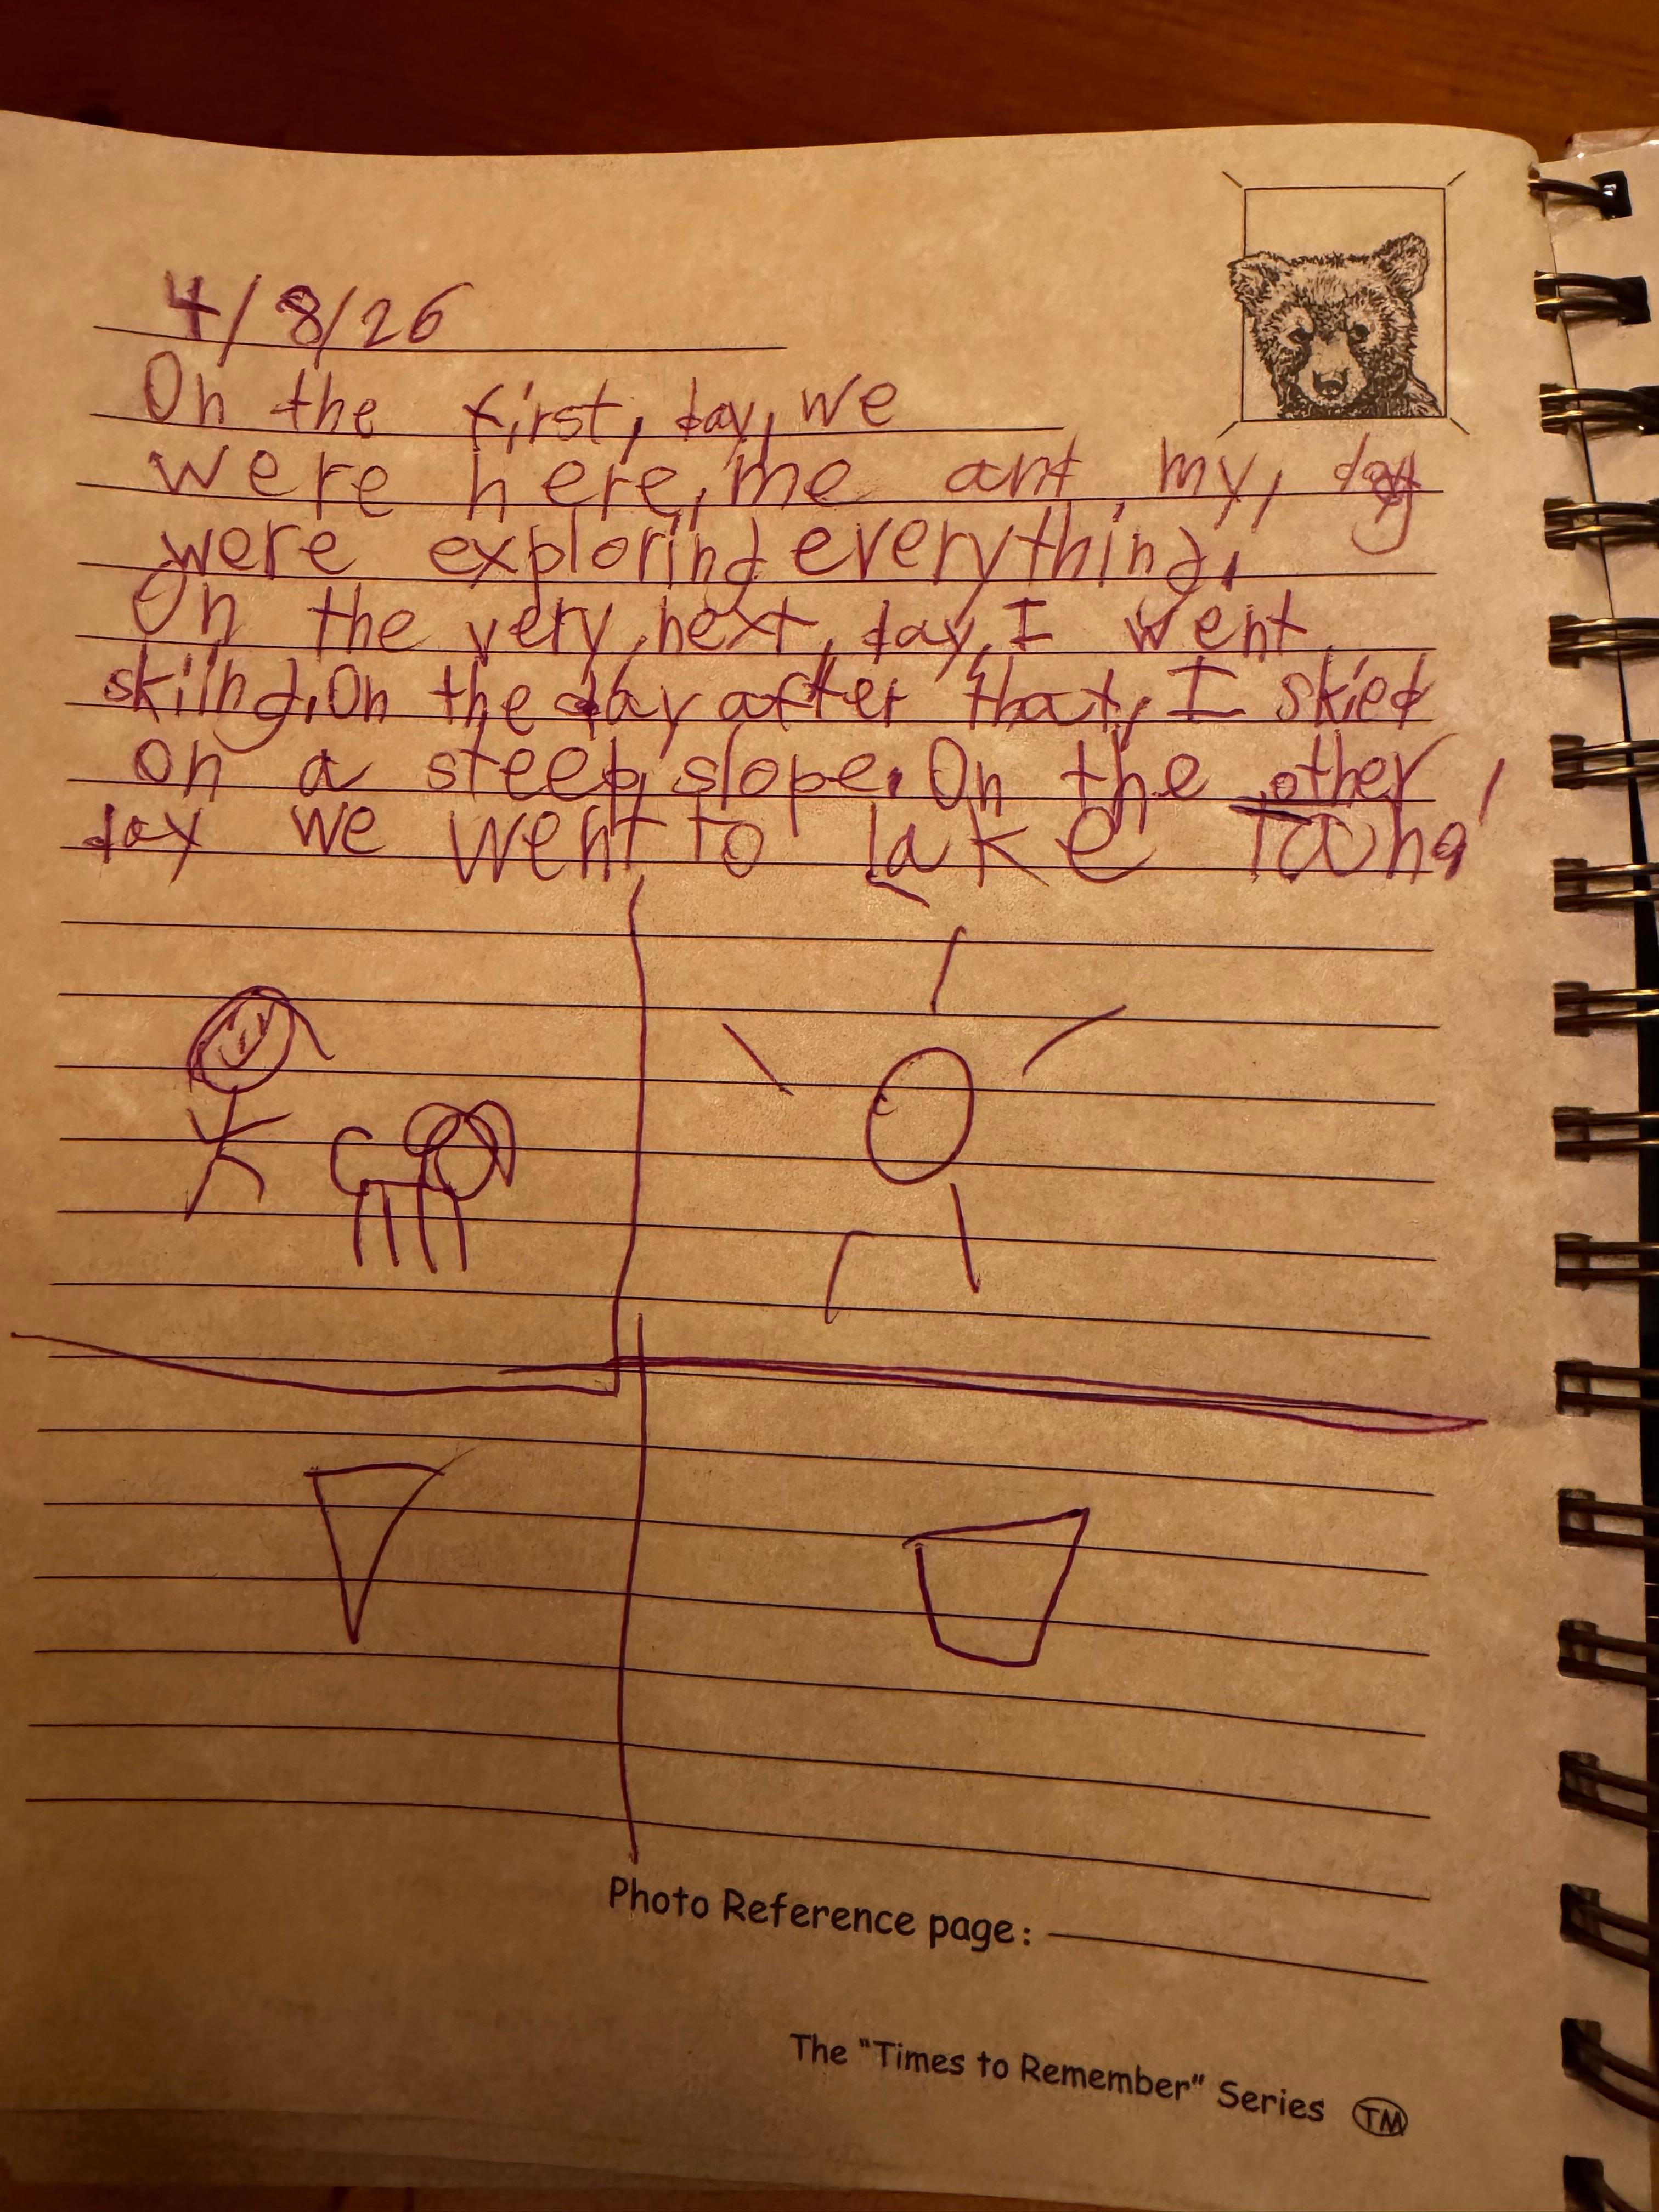 4/8/26
On the first, day, we
were here, me and my, dog
were exploring everything.
On the very next, day, I went
skiing. On the day after that, I skied
on a steep slope. On the other,
day we went to lake Taoho
Photo Reference page:
The "Times to Remember" Series TM